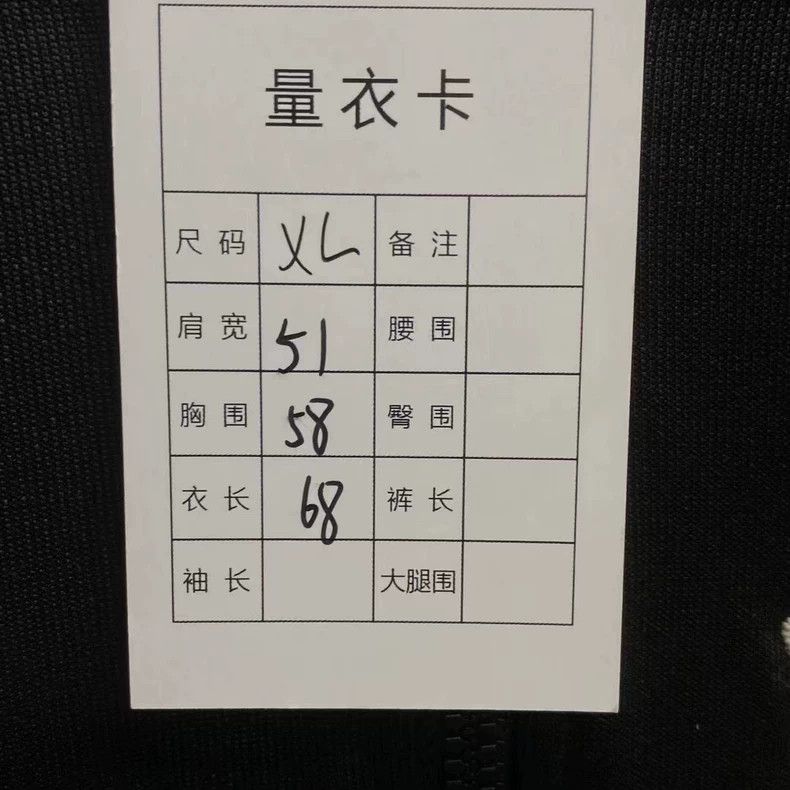 量衣卡
尺码 XL 备注
肩宽 51 腰围
胸围 58 臀围
衣长 68 裤长
袖长 大腿围